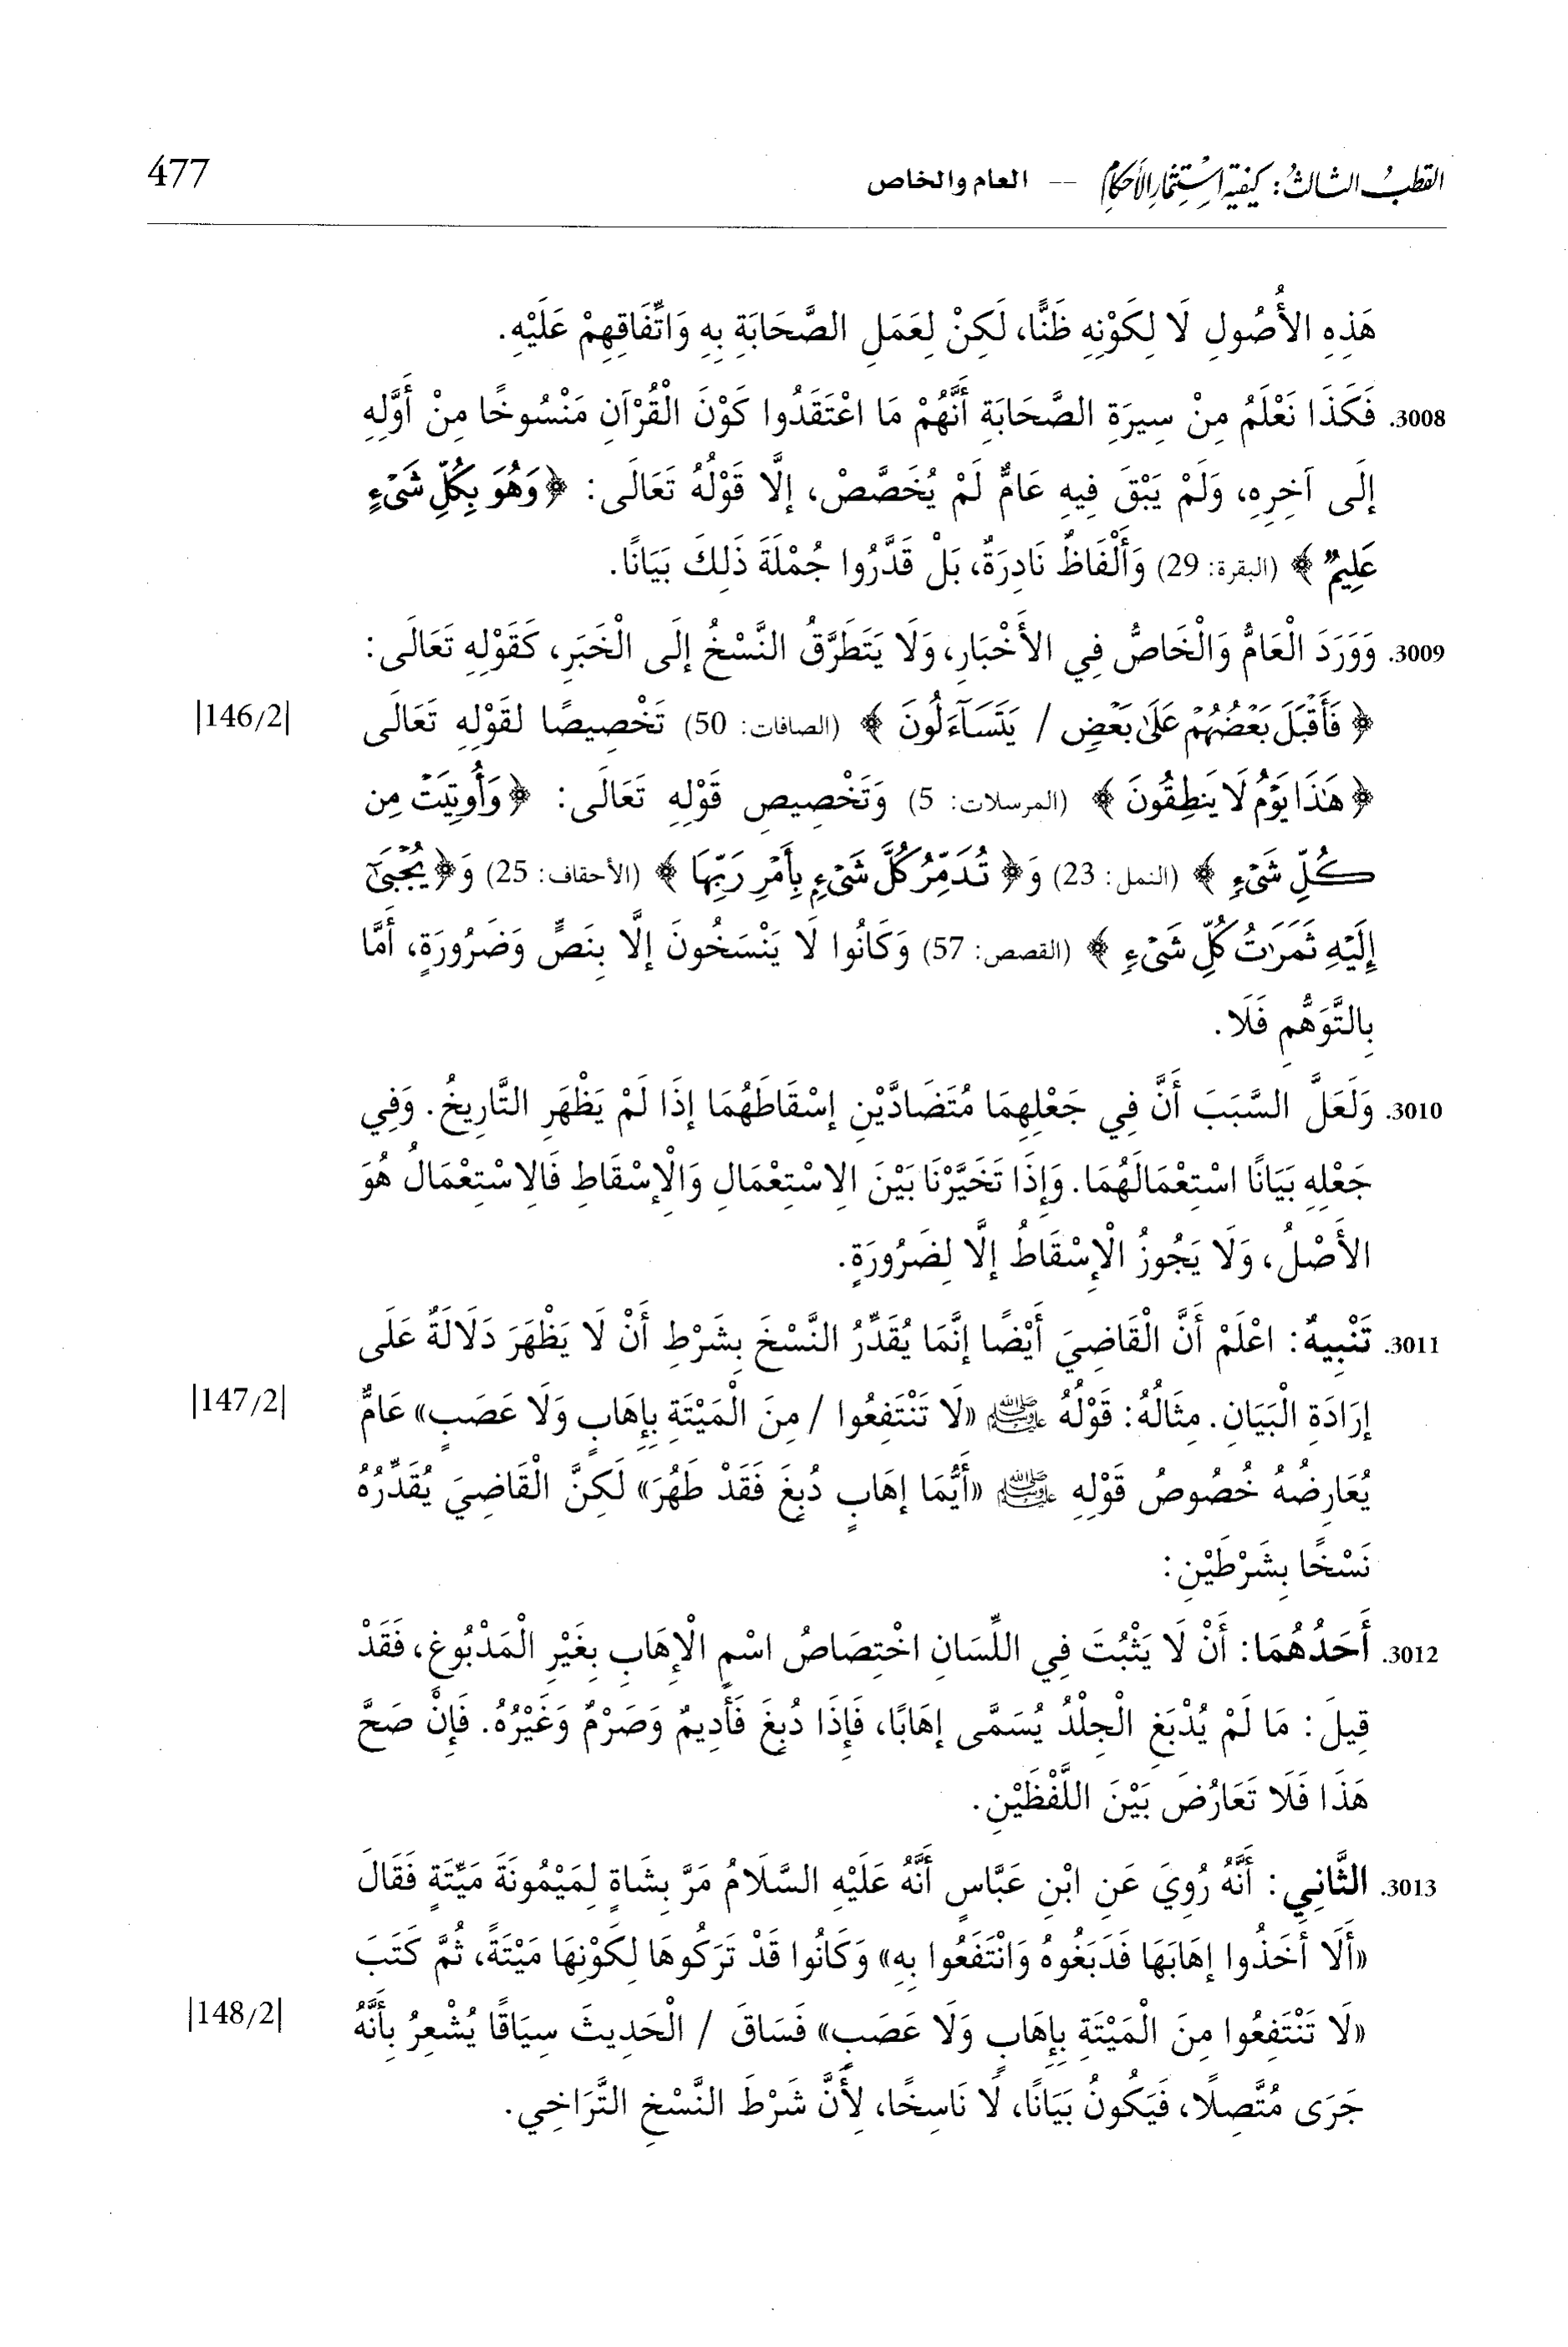 القطب الثالث: كيفية استثمار الأحكام -- العام والخاص 477
هَذِهِ الأُصُولِ لَا لِكَوْنِهِ ظَنًّا، لَكِنْ لِعَمَلِ الصَّحَابَةِ بِهِ وَاتِّفَاقِهِمْ عَلَيْهِ.
3008. فَكَذَا نَعْلَمُ مِنْ سِيرَةِ الصَّحَابَةِ أَنَّهُمْ مَا اعْتَقَدُوا كَوْنَ الْقُرْآنِ مَنْسُوخًا مِنْ أَوَّلِهِ
إِلَى آخِرِهِ، وَلَمْ يَبْقَ فِيهِ عَامٌّ لَمْ يُخَصَّصْ، إِلَّا قَوْلُهُ تَعَالَى: ﴿وَهُوَ بِكُلِّ شَيْءٍ
عَلِيمٌ﴾ (البقرة: 29) وَأَلْفَاظٌ نَادِرَةٌ، بَلْ قَدَّرُوا جُمْلَةَ ذَلِكَ بَيَانًا.
3009. وَوَرَدَ الْعَامُّ وَالْخَاصُّ فِي الأَخْبَارِ، وَلَا يَتَطَرَّقُ النَّسْخُ إِلَى الْخَبَرِ، كَقَوْلِهِ تَعَالَى:
﴿فَأَقْبَلَ بَعْضُهُمْ عَلَىٰ بَعْضٍ / يَتَسَآءَلُونَ﴾ (الصافات: 50) تَخْصِيصًا لقَوْلِهِ تَعَالَى |146/2|
﴿هَٰذَا يَوْمُ لَا يَنطِقُونَ﴾ (المرسلات: 5) وَتَخْصِيصِ قَوْلِهِ تَعَالَى: ﴿وَأُوتِيَتْ مِن
كُلِّ شَيْءٍ﴾ (النمل: 23) وَ﴿تُدَمِّرُ كُلَّ شَيْءٍ بِأَمْرِ رَبِّهَا﴾ (الأحقاف: 25) وَ﴿يُجْبَىٰٓ
إِلَيْهِ ثَمَرَٰتُ كُلِّ شَيْءٍ﴾ (القصص: 57) وَكَانُوا لَا يَنْسَخُونَ إِلَّا بِنَصٍّ وَضَرُورَةٍ، أَمَّا
بِالتَّوَهُّمِ فَلَا.
3010. وَلَعَلَّ السَّبَبَ أَنَّ فِي جَعْلِهِمَا مُتَضَادَّيْنِ إِسْقَاطَهُمَا إِذَا لَمْ يَظْهَرِ التَّارِيخُ. وَفِي
جَعْلِهِ بَيَانًا اسْتِعْمَالَهُمَا. وَإِذَا تَخَيَّرْنَا بَيْنَ الِاسْتِعْمَالِ وَالْإِسْقَاطِ فَالِاسْتِعْمَالُ هُوَ
الأَصْلُ، وَلَا يَجُوزُ الْإِسْقَاطُ إِلَّا لِضَرُورَةٍ.
3011. تَنْبِيهٌ: اعْلَمْ أَنَّ الْقَاضِيَ أَيْضًا إِنَّمَا يُقَدِّرُ النَّسْخَ بِشَرْطِ أَنْ لَا يَظْهَرَ دَلَالَةٌ عَلَى
إِرَادَةِ الْبَيَانِ. مِثَالُهُ: قَوْلُهُ ﷺ «لَا تَنْتَفِعُوا / مِنَ الْمَيْتَةِ بِإِهَابٍ وَلَا عَصَبٍ» عَامٌّ |147/2|
يُعَارِضُهُ خُصُوصُ قَوْلِهِ ﷺ «أَيُّمَا إِهَابٍ دُبِغَ فَقَدْ طَهُرَ» لَكِنَّ الْقَاضِيَ يُقَدِّرُهُ
نَسْخًا بِشَرْطَيْنِ:
3012. أَحَدُهُمَا: أَنْ لَا يَثْبُتَ فِي اللِّسَانِ اخْتِصَاصُ اسْمِ الْإِهَابِ بِغَيْرِ الْمَدْبُوغِ، فَقَدْ
قِيلَ: مَا لَمْ يُدْبَغِ الْجِلْدُ يُسَمَّى إِهَابًا، فَإِذَا دُبِغَ فَأَدِيمٌ وَصَرْمٌ وَغَيْرُهُ. فَإِنْ صَحَّ
هَذَا فَلَا تَعَارُضَ بَيْنَ اللَّفْظَيْنِ.
3013. الثَّانِي: أَنَّهُ رُوِيَ عَنِ ابْنِ عَبَّاسٍ أَنَّهُ عَلَيْهِ السَّلَامُ مَرَّ بِشَاةٍ لِمَيْمُونَةَ مَيِّتَةٍ فَقَالَ
«أَلَا أَخَذُوا إِهَابَهَا فَدَبَغُوهُ وَانْتَفَعُوا بِهِ» وَكَانُوا قَدْ تَرَكُوهَا لِكَوْنِهَا مَيْتَةً، ثُمَّ كَتَبَ
«لَا تَنْتَفِعُوا مِنَ الْمَيْتَةِ بِإِهَابٍ وَلَا عَصَبٍ» فَسَاقَ / الْحَدِيثَ سِيَاقًا يُشْعِرُ بِأَنَّهُ |148/2|
جَرَى مُتَّصِلًا، فَيَكُونُ بَيَانًا، لَا نَاسِخًا، لِأَنَّ شَرْطَ النَّسْخِ التَّرَاخِي.